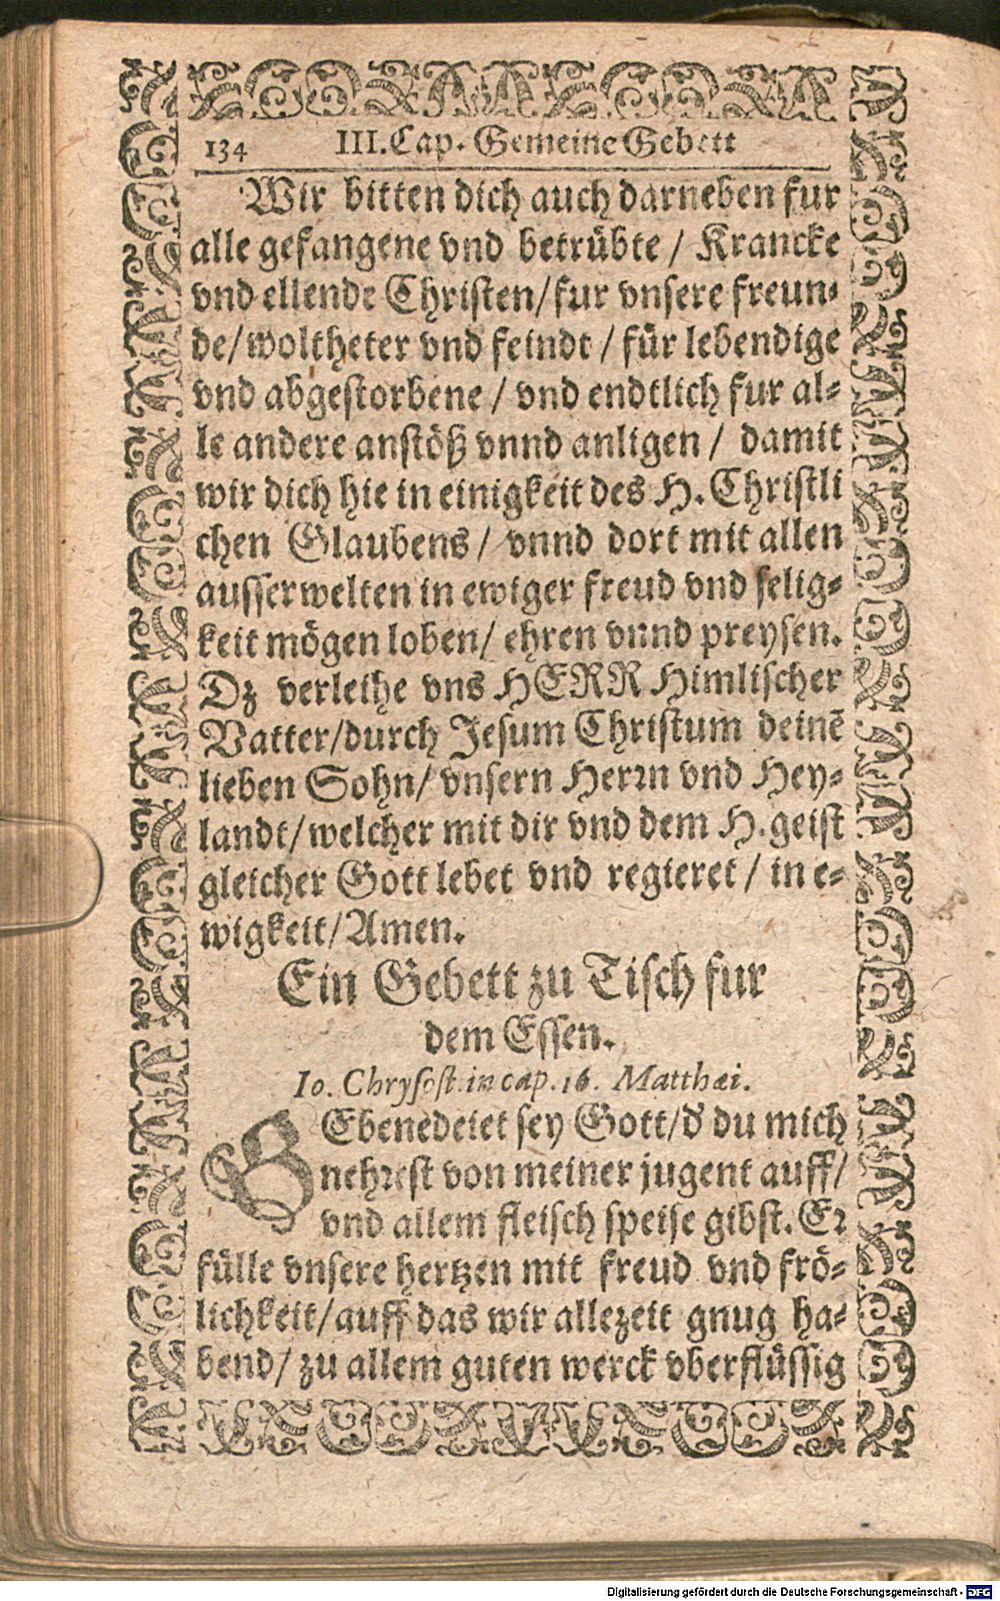 134 III. Cap. Gemeine Gebett
Wir bitten dich auch darneben fur
alle gefangene vnd betrübte / Krancke
vnd ellende Christen/fur vnsere freun-
de/woltheter vnd feindt / für lebendige
vnd abgestorbene / vnd endtlich fur al-
le andere anstöß vnnd anligen / damit
wir dich hie in einigkeit des H. Christli
chen Glaubens / vnnd dort mit allen
ausserwelten in ewiger freud vnd selig-
keit mögen loben/ ehren vnnd preysen.
Dz verleihe vns HERR Himlischer
Vatter/durch Jesum Christum deinē
lieben Sohn/ vnsern Herrn vnd Hey-
landt/welcher mit dir vnd dem H. geist
gleicher Gott lebet vnd regieret / in e-
wigkeit/Amen.
Ein Gebett zu Tisch fur
dem Essen.
Io. Chrysost. in cap. 16. Matthæi.
GEbenedeiet sey Gott/d' du mich
nehrest von meiner jugent auff/
vnd allem fleisch speise gibst. Er
fülle vnsere hertzen mit freud vnd frö-
lichkeit/auff das wir allezeit gnug ha-
bend/ zu allem guten werck vberflüssig
Digitalisierung gefördert durch die Deutsche Forschungsgemeinschaft - DFG